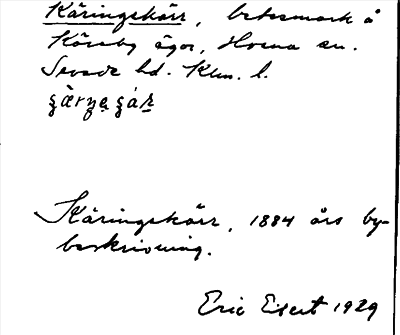 Käringekärr, betesmark å
Köreby ägor, Horna sn.
Sevede hd. Klm. l.
Käringekärr, 1884 års by-
beskrivning.
Eric Elgert 1929